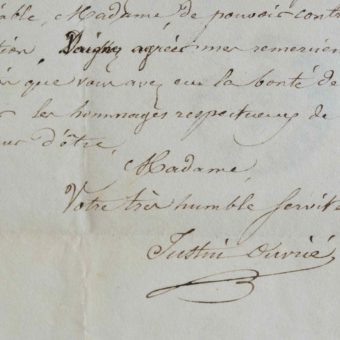 able, Madame de pouvoir contr
tien Daignez agréer mes remerciem
que vous avez eu la bonté de
les hommages respectueux de
d'être,
Madame,
Votre très humble Servite
Justin Ouvrié